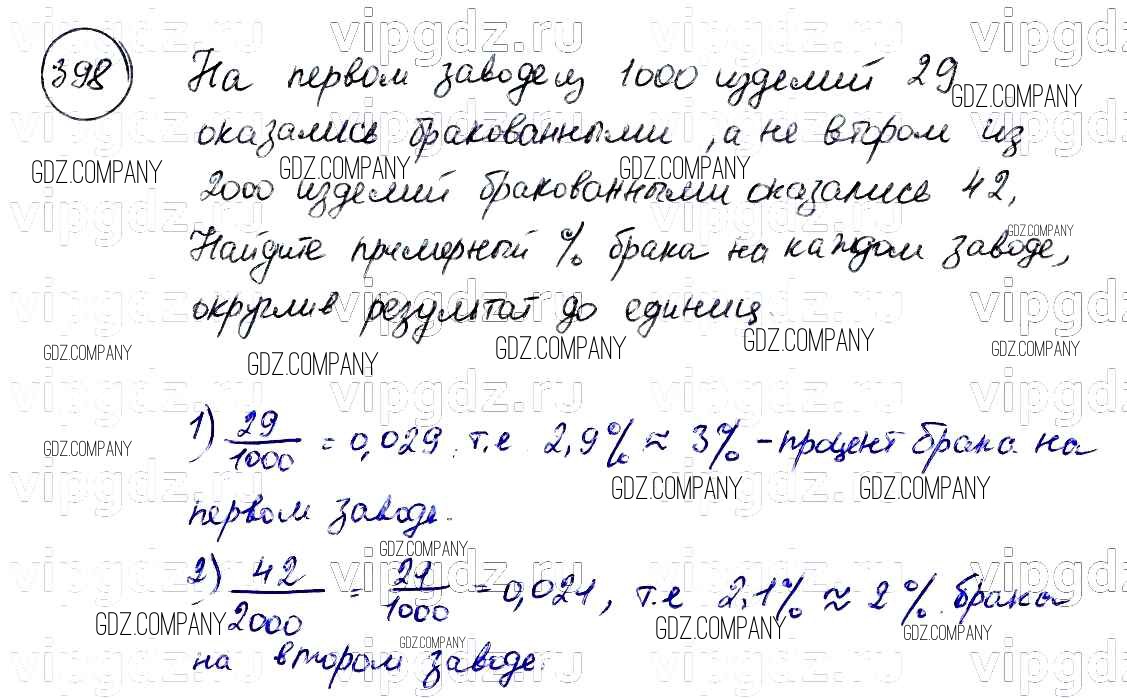 398 На первом заводе из 1000 изделий 29
оказались бракованными, а не втором из
2000 изделий бракованными оказались 42,
Найдите примерный % брака на каждом заводе,
округлив результат до единиц.
1) 29/1000 = 0,029 т.е 2,9% ≈ 3% - процент брака на
первом заводе.
2) 42/2000 = 21/1000 = 0,021, т.е 2,1% ≈ 2% брака
на втором заводе.
vipgdz.ru
GDZ.COMPANY